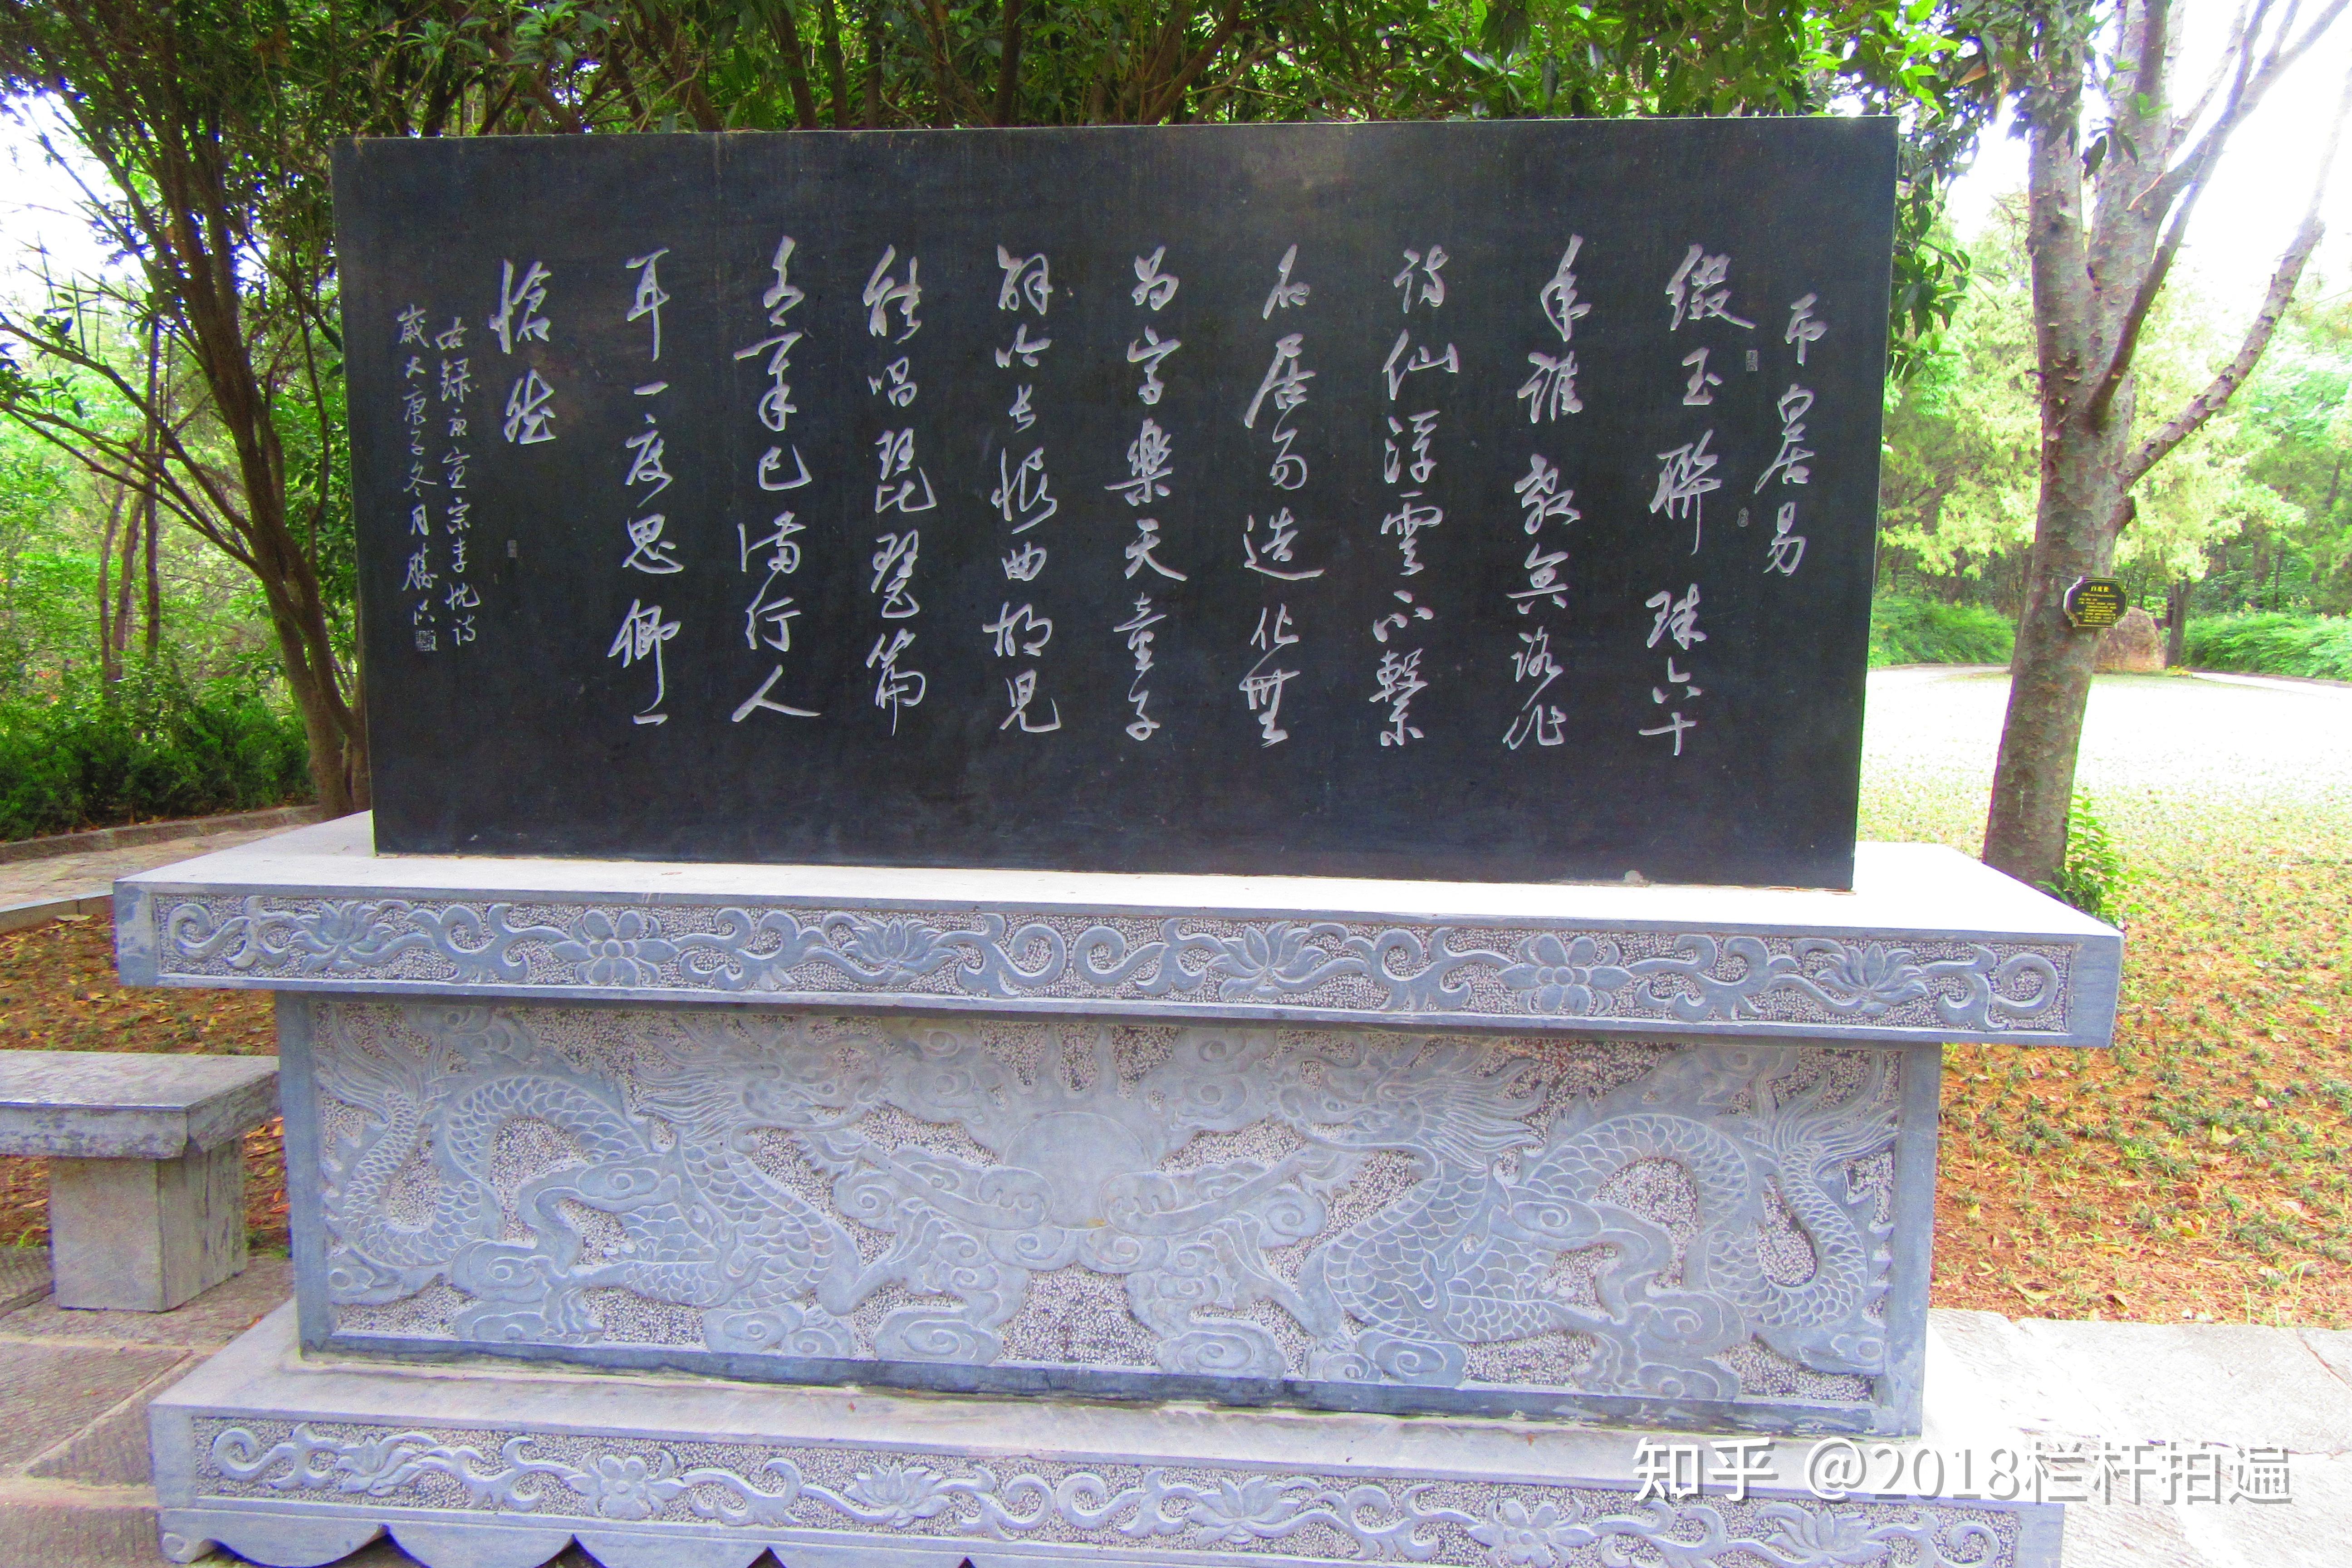 吊白居易
綴玉聯珠六十
年誰教冥路作
詩仙浮雲不繫
名居易造化無
為字樂天童子
解吟长恨曲胡児
能唱琵琶篇
文章已滿行人
耳一度思卿一
愴然
右録唐宣宗李忱詩
歲次庚子冬月勝
知乎 @2018栏杆拍遍